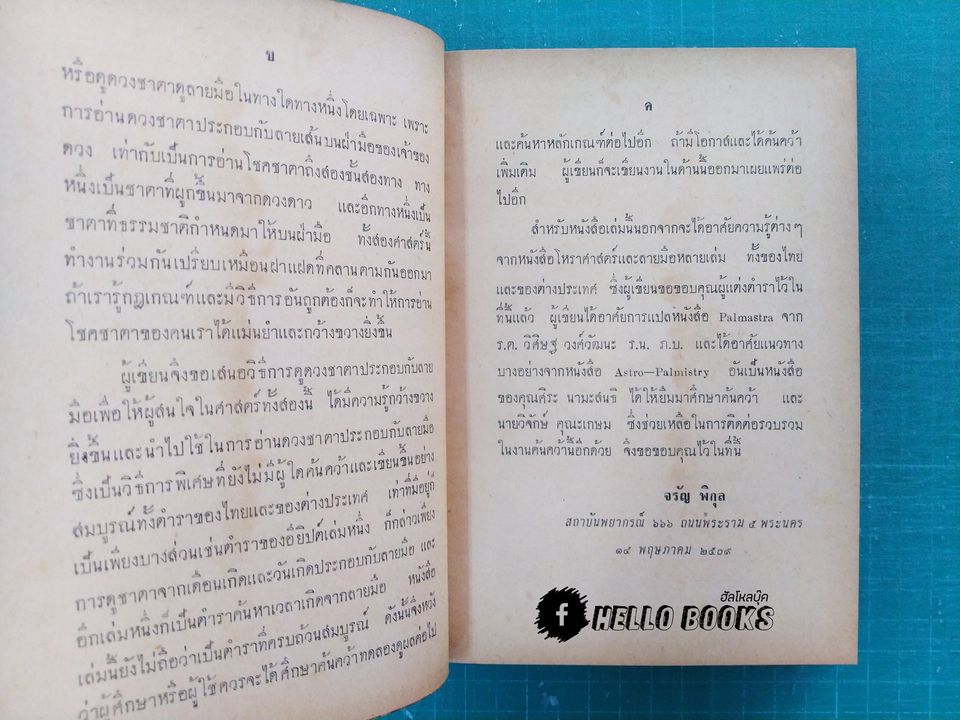 ข
หรือดูดวงชาตาดูลายมือในทางใดทางหนึ่งโดยเฉพาะ เพราะ
การอ่านดวงชาตาประกอบกับลายเส้นบนฝ่ามือของเจ้าของ
ดวง เท่ากับเป็นการอ่านโชคชาตาถึงสองชั้นสองทาง ทาง
หนึ่งเป็นชาตาที่ผูกขึ้นมาจากดวงดาว และอีกทางหนึ่งเป็น
ชาตาที่ธรรมชาติกำหนดมาให้บนฝ่ามือ ทั้งสองศาสตร์นี้
ทำงานร่วมกันเปรียบเหมือนฝาแฝดที่คลานตามกันออกมา
ถ้าเรารู้กฎเกณฑ์และมีวิธีการอันถูกต้องก็จะทำให้การอ่าน
โชคชาตาของคนเราได้แม่นยำและกว้างขวางยิ่งขึ้น
ผู้เขียนจึงขอเสนอวิธีการดูดวงชาตาประกอบกับลาย
มือเพื่อให้ผู้สนใจในศาสตร์ทั้งสองนี้ ได้มีความรู้กว้างขวาง
ยิ่งขึ้นและนำไปใช้ในการอ่านดวงชาตาประกอบกับลายมือ
ซึ่งเป็นวิธีการพิเศษที่ยังไม่มีผู้ใดค้นคว้าและเขียนขึ้นอย่าง
สมบูรณ์ทั้งตำราของไทยและของต่างประเทศ เท่าที่มีอยู่ก็
เป็นเพียงบางส่วนเช่นตำราของอียิปต์เล่มหนึ่ง ก็กล่าวเพียง
การดูชาตาจากเดือนเกิดและวันเกิดประกอบกับลายมือ และ
อีกเล่มหนึ่งก็เป็นตำราค้นหาเวลาเกิดจากลายมือ หนังสือ
เล่มนี้ยังไม่ถือว่าเป็นตำราที่ครบถ้วนสมบูรณ์ ดังนั้นจึงหวัง
ว่าผู้ศึกษาหรือผู้ใช้ควรจะได้ศึกษาค้นคว้าทดลองดูผลต่อไป
ค
และค้นหาหลักเกณฑ์ต่อไปอีก ถ้ามีโอกาสและได้ค้นคว้า
เพิ่มเติม ผู้เขียนก็จะเขียนงานในด้านนี้ออกมาเผยแพร่ต่อ
ไปอีก
สำหรับหนังสือเล่มนี้นอกจากจะได้อาศัยความรู้ต่าง ๆ
จากหนังสือโหราศาสตร์และลายมือหลายเล่ม ทั้งของไทย
และของต่างประเทศ ซึ่งผู้เขียนขอขอบคุณผู้แต่งตำราไว้ใน
ที่นี้แล้ว ผู้เขียนได้อาศัยการแปลหนังสือ Palmastra จาก
ร.ต. วิศิษฐ์ วงศ์วัฒนะ ร.น. ภ.บ. และได้อาศัยแนวทาง
บางอย่างจากหนังสือ Astro—Palmistry อันเป็นหนังสือ
ของคุณศิระ นามะสนธิ ได้ให้ยืมมาศึกษาค้นคว้า และ
นายวิจักษ์ คุณะเกษม ซึ่งช่วยเหลือในการติดต่อรวบรวม
ในงานค้นคว้านี้อีกด้วย จึงขอขอบคุณไว้ในที่นี้
จรัญ พิกุล
สถาบันพยากรณ์ ๖๖๖ ถนนพระราม ๕ พระนคร
๑๔ พฤษภาคม ๒๕๐๙
ฮัลโหลบุ๊ค
f HELLO BOOKS